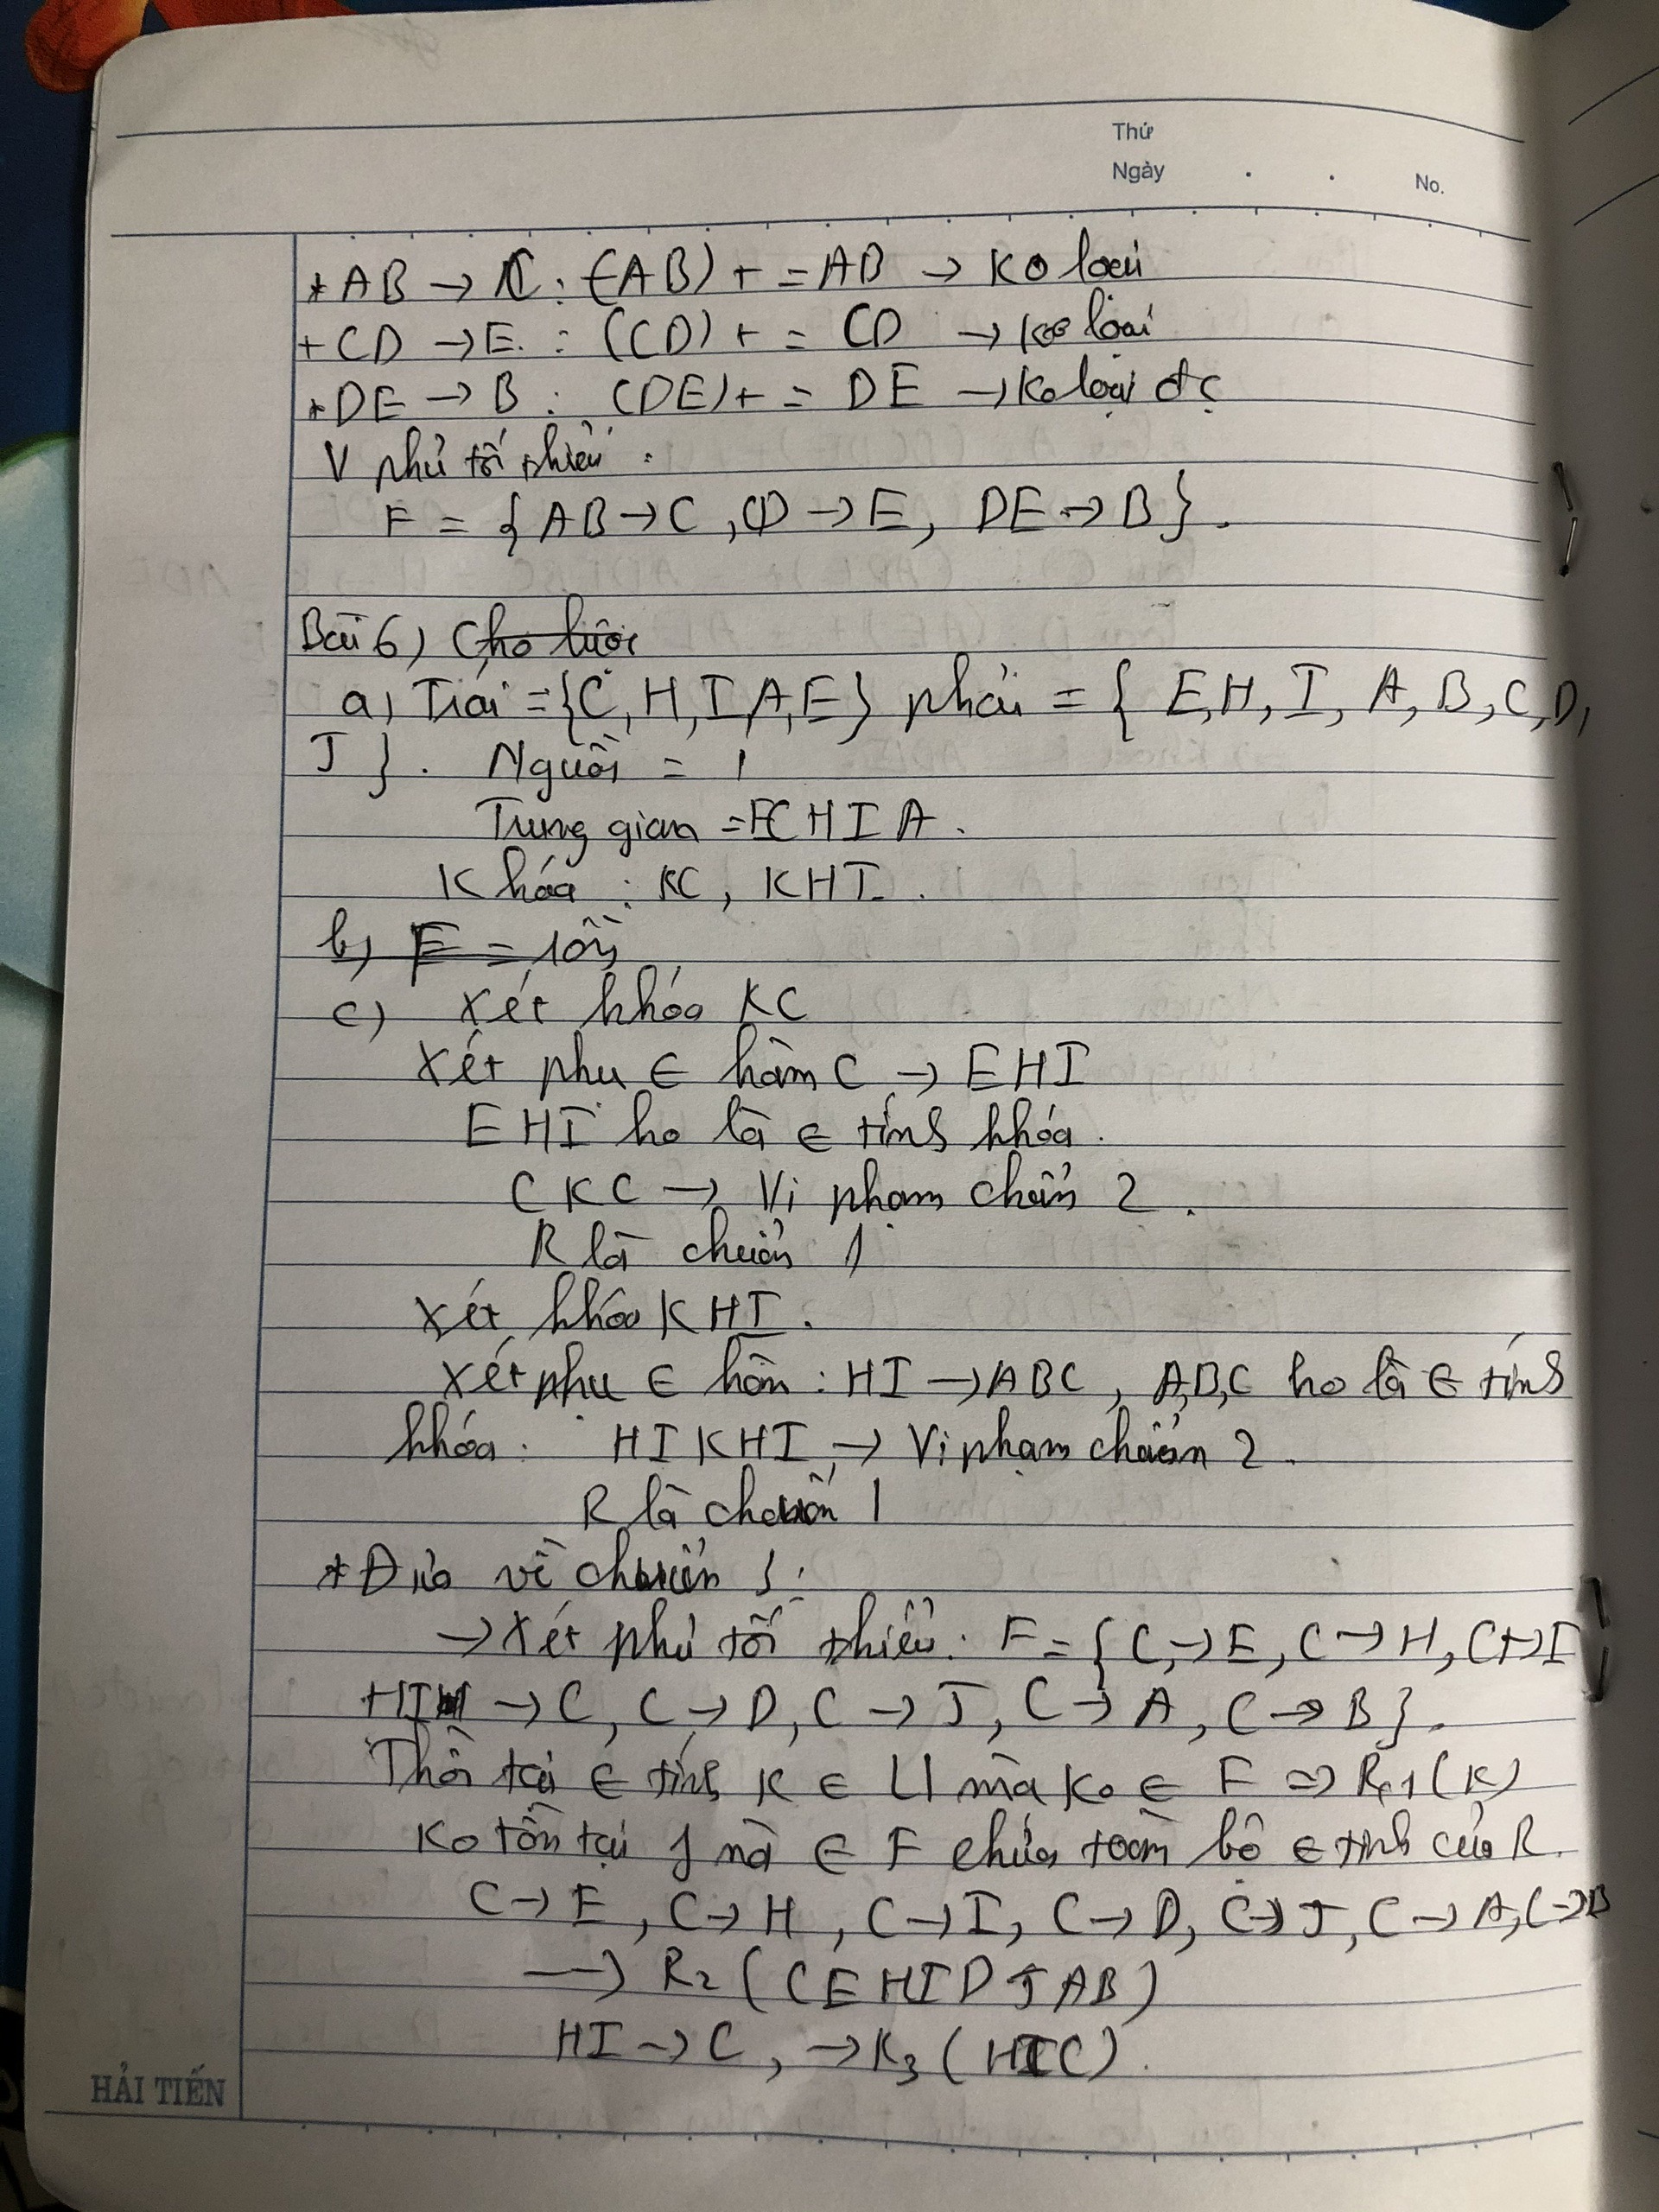 Thứ
Ngày . . No.
* AB → C : (AB)+ = AB → Ko loại
+ CD → E : (CD)+ = CD → Ko loại
* DE → B : (DE)+ = DE → Ko loại đc
V phủ tối thiểu :
F = { AB → C , CD → E , DE → B } .
Bài 6) Cho lược
a) Trái = {C, H, I, A, E} phải = { E, H, I, A, B, C, D,
J } . Nguồn = 1
Trung gian = ECHIA .
Khóa : KC , KHI .
b) F =
c) Xét khóa KC
Xét phụ ∈ hàm C → EHI
EHI ko là ∈ tính khóa .
C KC → Vi phạm chuẩn 2 .
R là chuẩn 1
Xét khóa KHI .
Xét phụ ∈ hàm : HI → ABC , A,B,C ko là ∈ tính
khóa . HI KHI → Vi phạm chuẩn 2 .
R là chuẩn 1
* Đưa về chuẩn 3 :
→ Xét phủ tối thiểu : F = { C → E , C → H , C → I
HI → C , C → D , C → J , C → A , C → B } .
tại ∈ tính K ∈ U mà ko ∈ F ⇒ R1 (K)
Ko tồn tại 1 nà ∈ F chứa toàn bộ ∈ tính của R .
C → E , C → H , C → I , C → D , C → J , C → A , C → B
→ R2 ( C E H I D J A B )
HI → C , → R3 ( HIC ) .
HẢI TIẾN